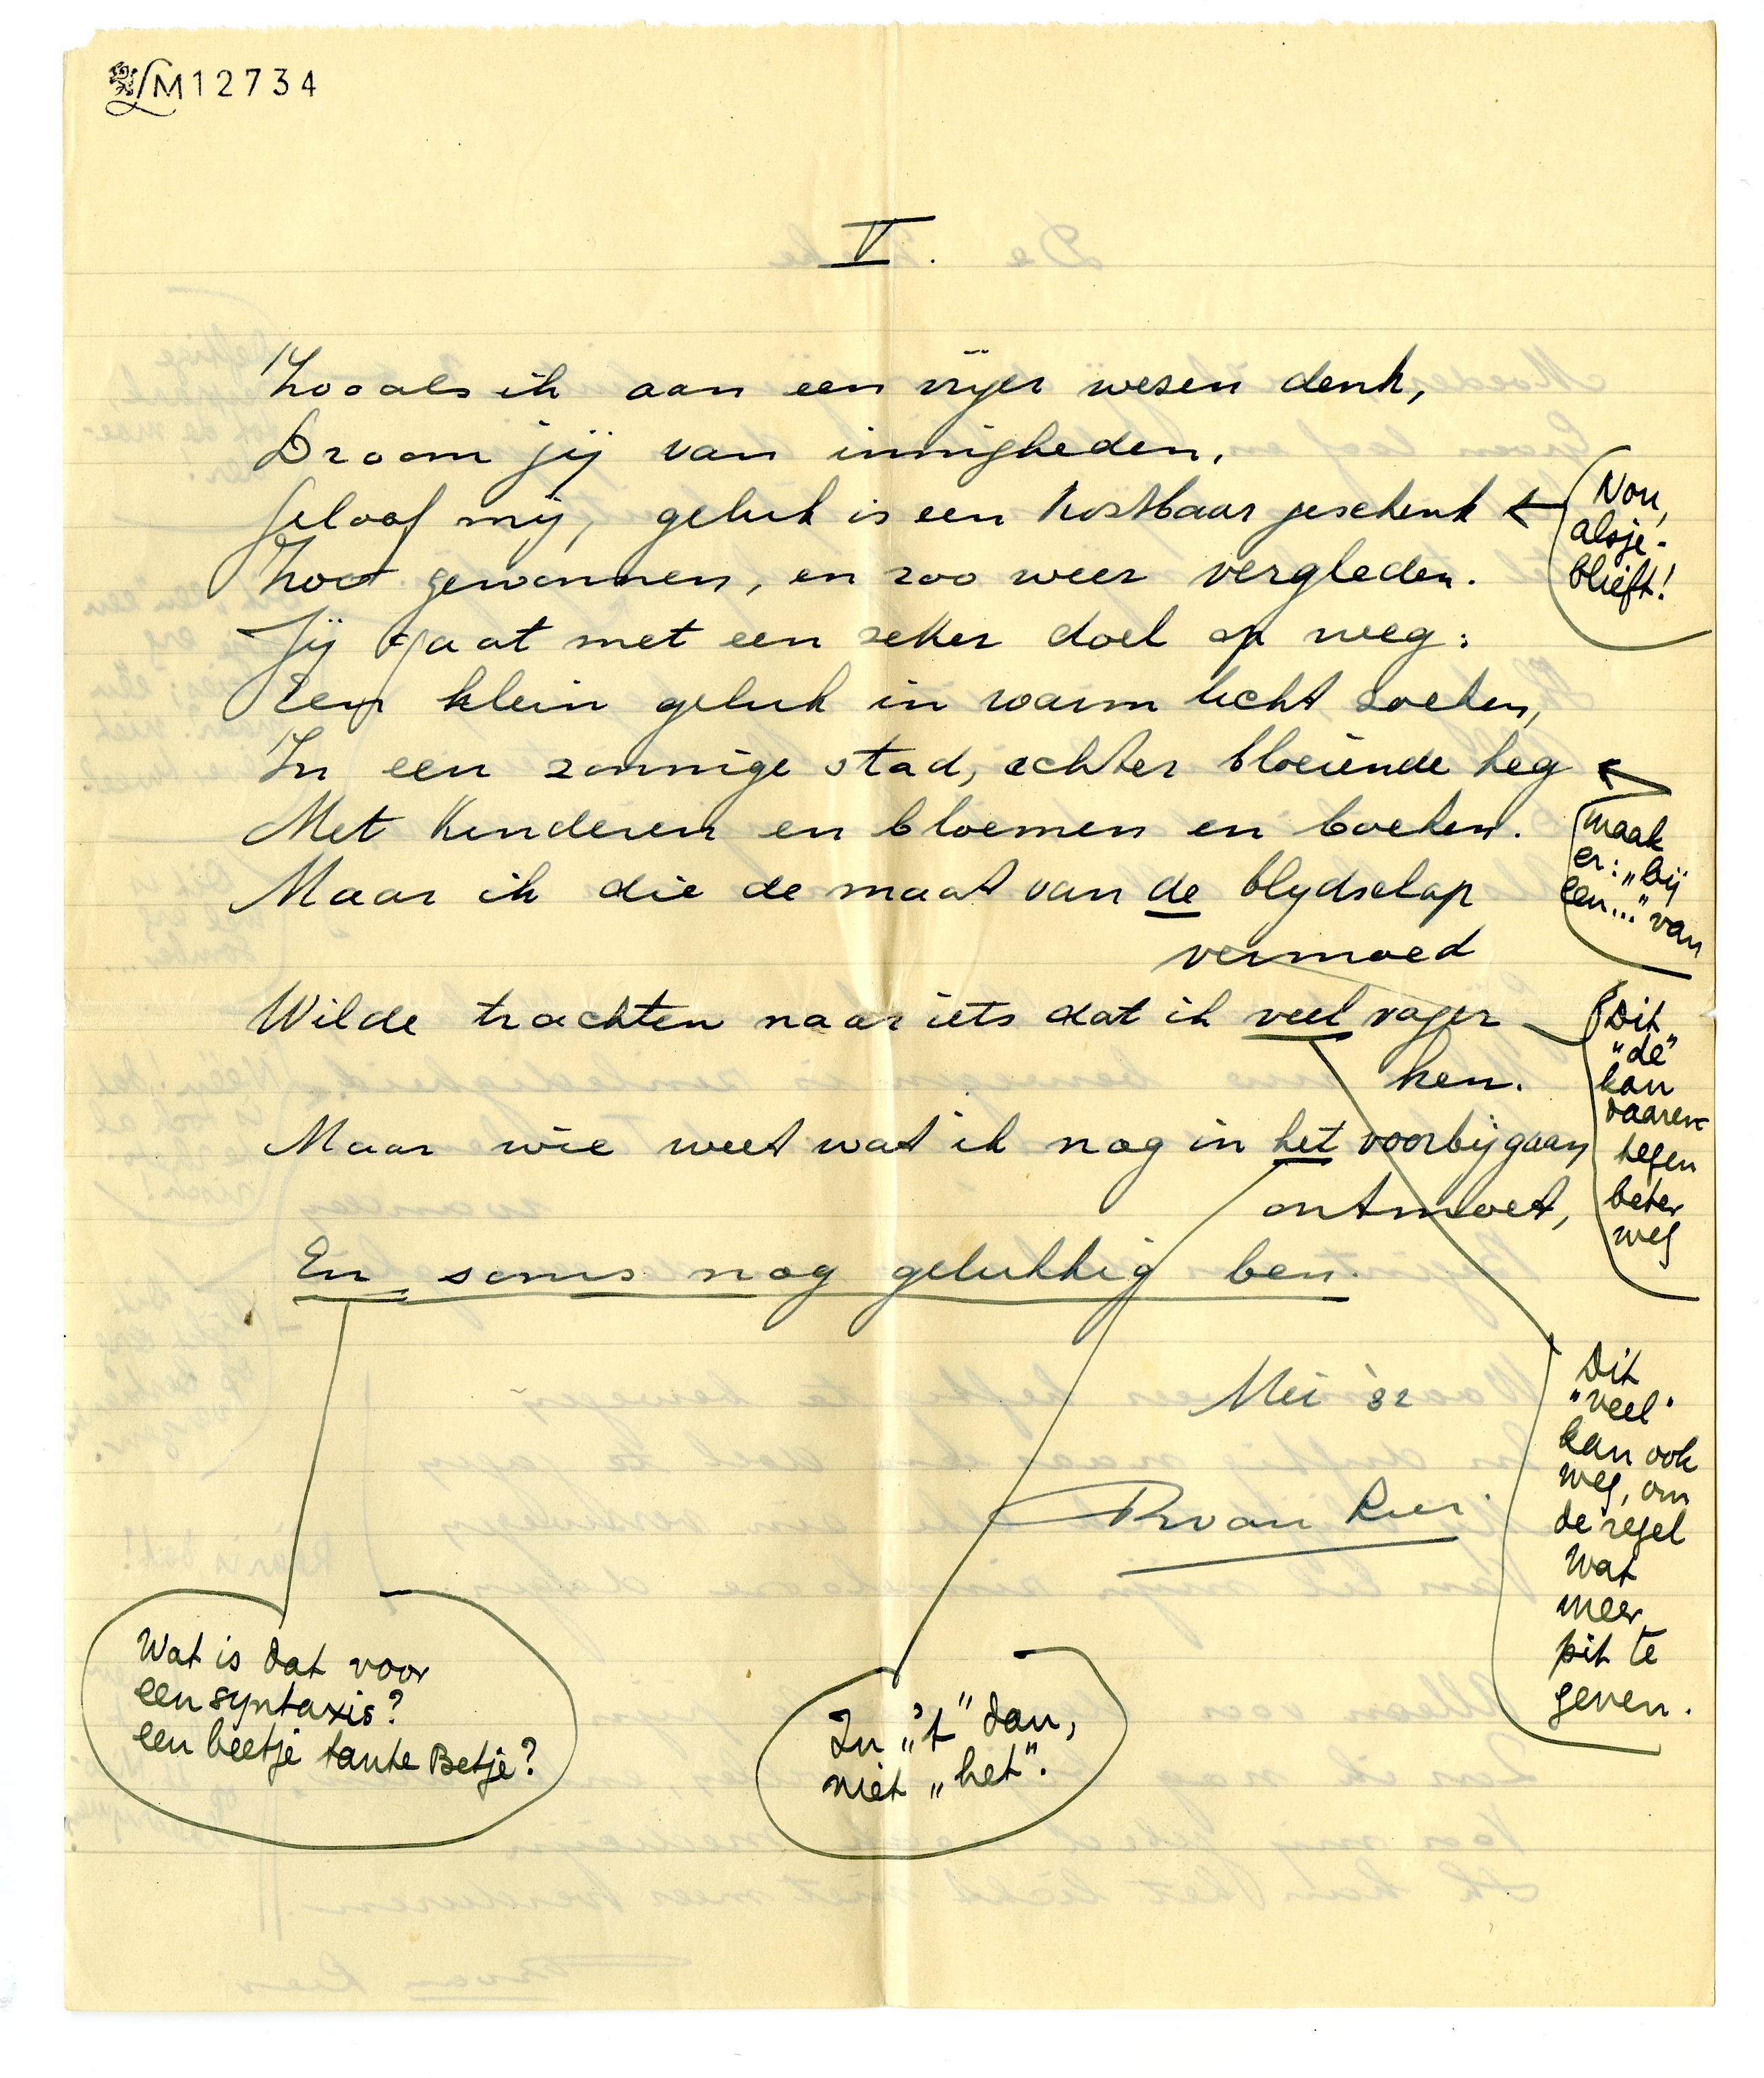 LM12734
V.
Zooals ik aan een vrijer wezen denk,
Droom jij van innigheden.
Geloof mij, geluk is een kostbaar geschenk
Zoo gewonnen, en zoo weer vergleden.
Jij gaat met een zeker doel op weg:
Een klein geluk in warm licht zoeken,
In een zonnige stad, achter bloeiende heg
Met kinderen en bloemen en boeken.
Maar ik die de maat van de blydschap
vermoed
Wilde trachten naar iets dat ik veel vager
ken.
Maar wie weet wat ik nog in het voorbijgaan
ontmoet,
En soms nog gelukkig ben.
Mei '32
R van Lier.
Nou,
alsje-
blieft!
maak
er: „bij
een..." van
Dit
"de"
kan
daaren-
tegen
beter
weg
Dit
"veel"
kan ook
weg, om
de regel
wat
meer
pit te
geven.
Wat is dat voor
een syntaxis?
een beetje tante Betje?
In „'t" dan,
niet „het".